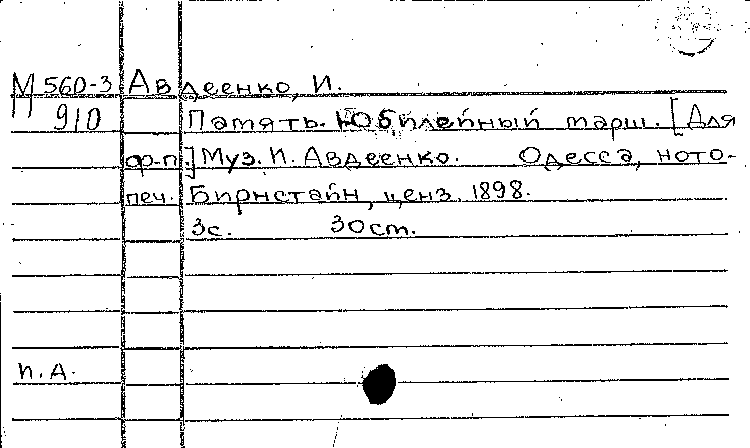 М 560-3 Авдеенко, И.
910 Память. Юбилейный марш. [Для
ф-п.] Муз. И. Авдеенко. Одесса, ното-
печ. Бирнстайн, ценз. 1898.
3с. 30см.
п.А.